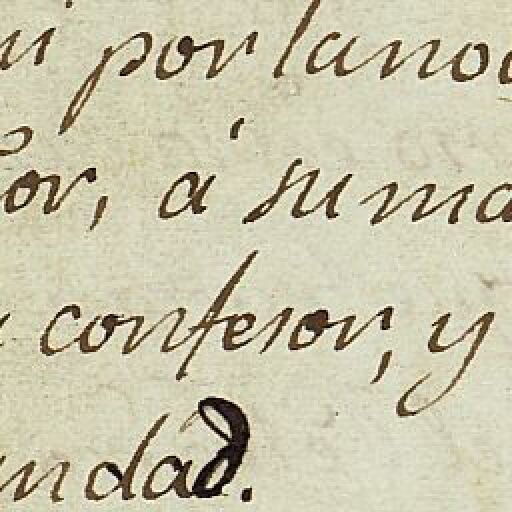 ui por la noc
or, á su ma
confesor, y
undad.